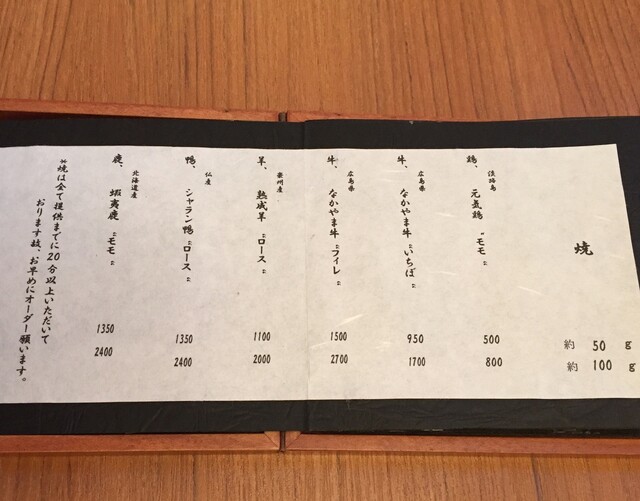 焼
約 50 g
約 100 g
鶏、淡路島 元気鶏 “モモ”
500
800
牛、広島県 なかやま牛 “いちぼ”
950
1700
牛、広島県 なかやま牛 “フィレ”
1500
2700
羊、豪州産 熟成羊 “ロース”
1100
2000
鴨、仏産 シャラン鴨 “ロース”
1350
2400
鹿、北海道産 蝦夷鹿 “モモ”
1350
2400
※焼は全て提供までに20分以上いただいて
おります故、お早めにオーダー願います。